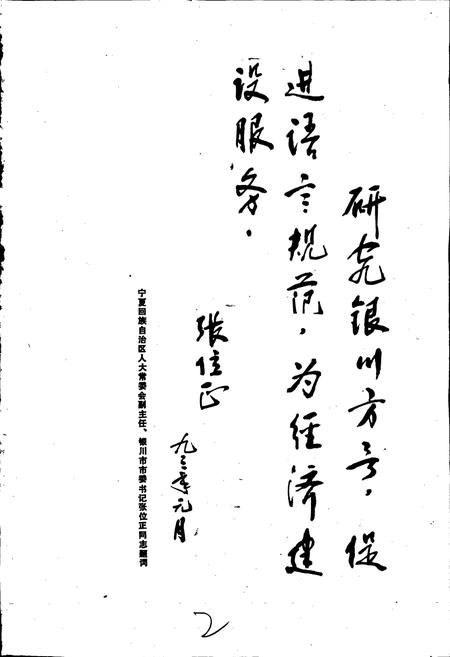 研究银川方言，促
进语言规范，为经济建
设服务．
张位正
九三年元月
宁夏回族自治区人大常委会副主任、银川市市委书记张位正同志题词
2